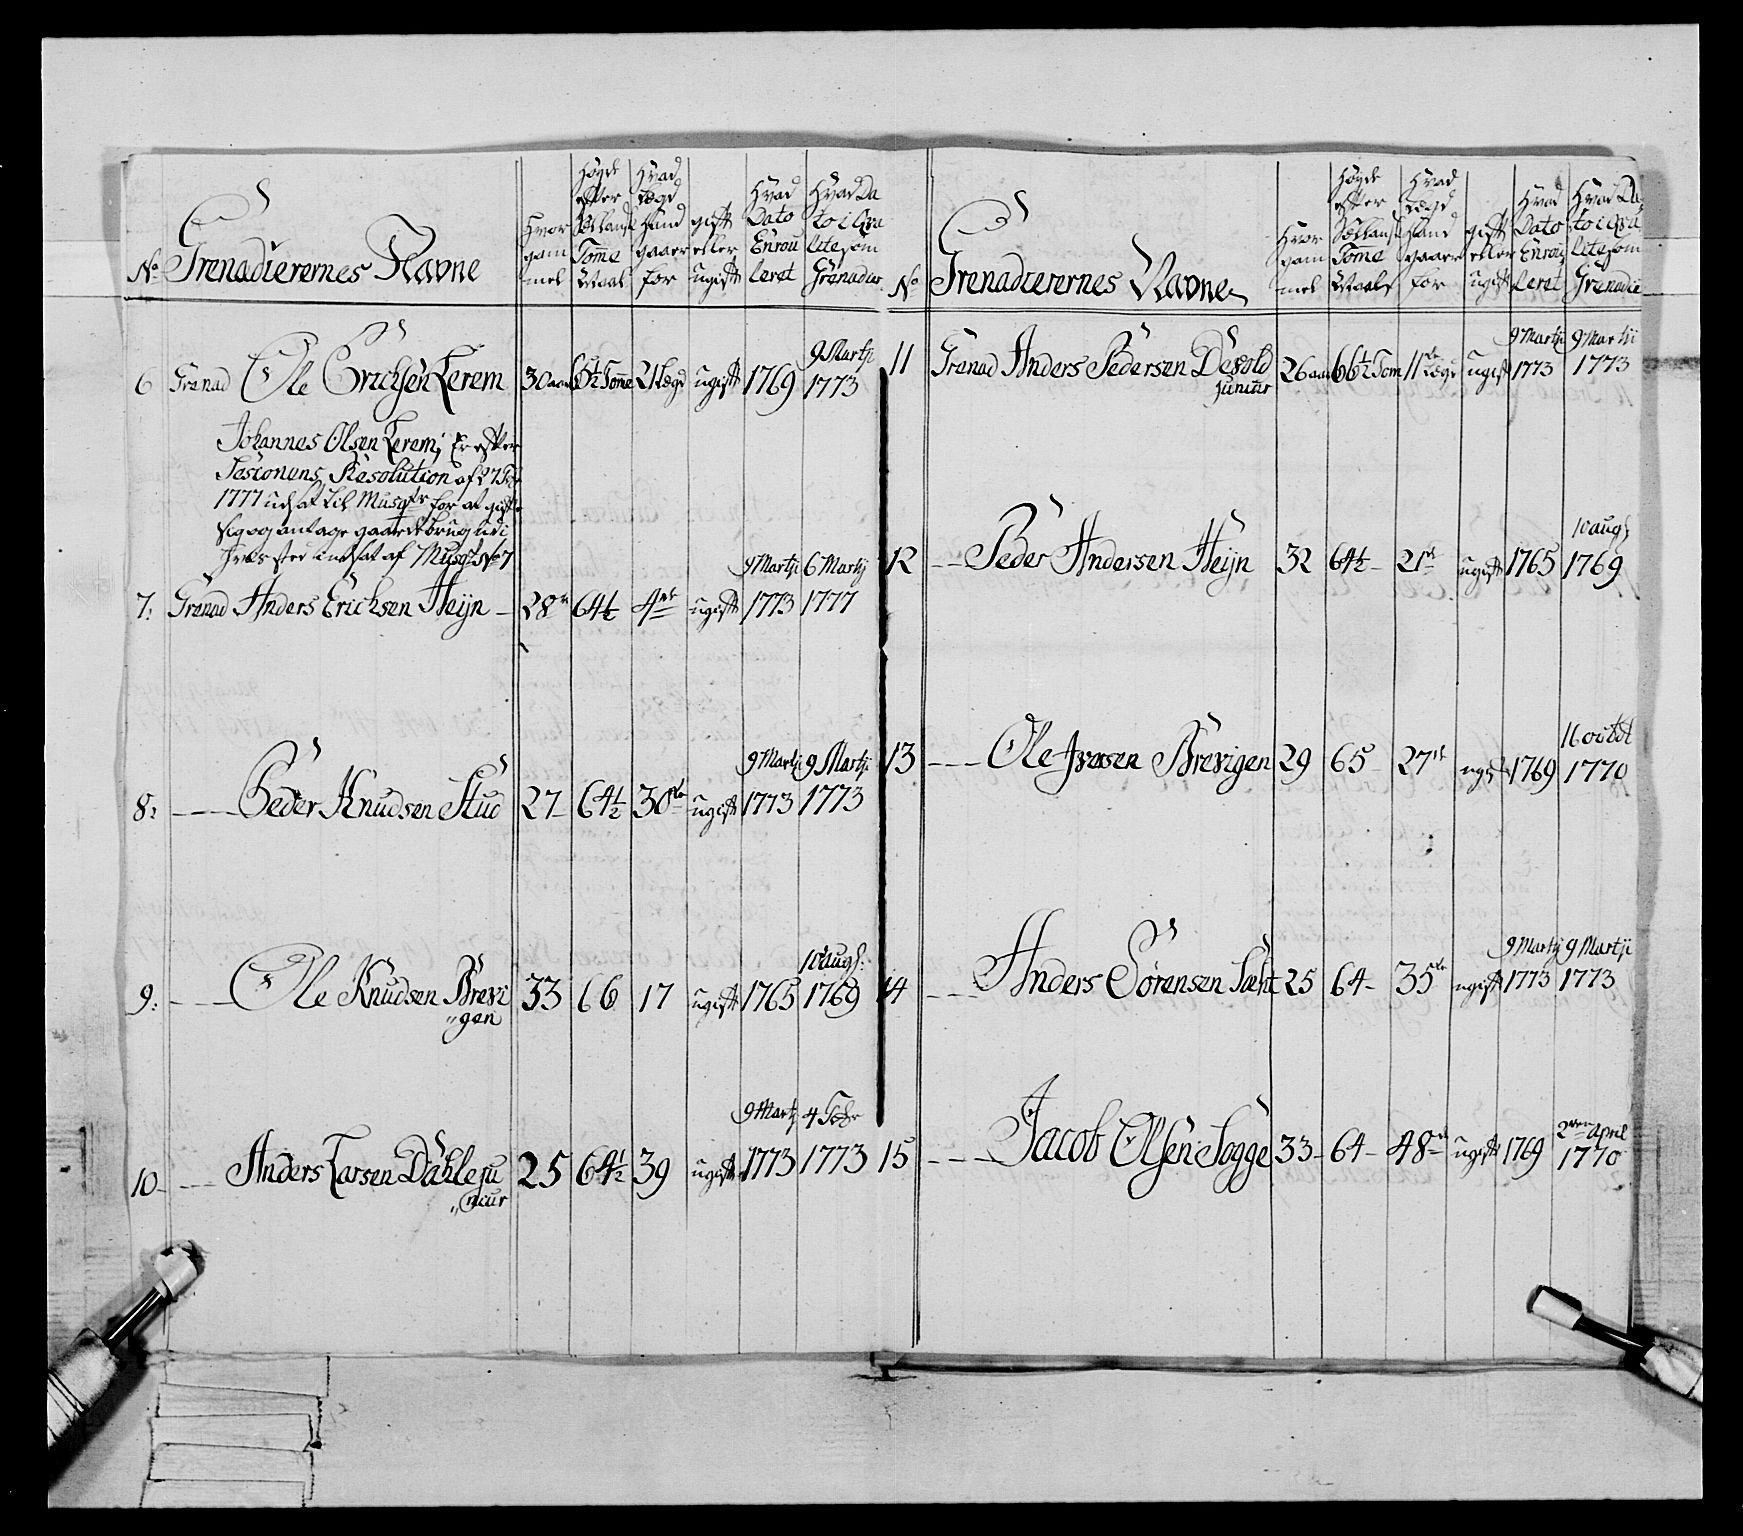 No Grenadierernes Navne Hvor gammel Høyde efter Siellansk Tomme Maal Hvad Lægd hand gaaer for gift eller ugift Hvad Dato Enroulleret Hvad Dato i Qualite som Grenadier
6 Grenad Ole Erichsen Lerem 30 aar 65½ Tomme 21 Lægd ugift 1769 9 Martji 1773
Johannes Olsen Lerem; Er efter
Sesionens Resolution af 27 Feb
1777 udsat til Musqtr for at gifte
sig og antage gaards brug udi
hvis sted indsat af Musqt No 7
7: Grenad Anders Ericksen Heijn 28 64½ 4de ugift 9 Martji 1773 6 Martij 1777
8: Peder Knudsen Stud 27 64½ 30te ugift 9 Martji 1773 9 Martji 1773
9: Ole Knudsen Brevi
"gen 33 66 17 ugift 1765 10 Aug: 1769
10 Anders Larsen Dahle ju
"niur 25 64½ 39 ugift 9 Martj 1773 4 Febr 1773
No Grenadierernes Navne Hvor gammel Høyde efter Siellansk Tomme Maal Hvad Lægd hand gaaer for gift eller ugift Hvad Dato Enroulleret Hvad Dato i Qualite som Grenadie
11 Grenad Anders Pedersen Devold
juniur 26 aar 66½ Tom 11te Lægd ugift 9 Martji 1773 9 Martji 1773
12 Peder Andersen Heijn 32 64½ 21de ugift 1765 10 aug: 1769
13 Ole Iversen Brevigen 29 65 27de ugift 1769 16 octbr 1770
14 Anders Sørensen Sæht 25 64 35te ugift 9 Martij 1773 9 Martji 1773
15 Jacob Olsen Sogge 33 64 48de ugift 1769 2den April 1770